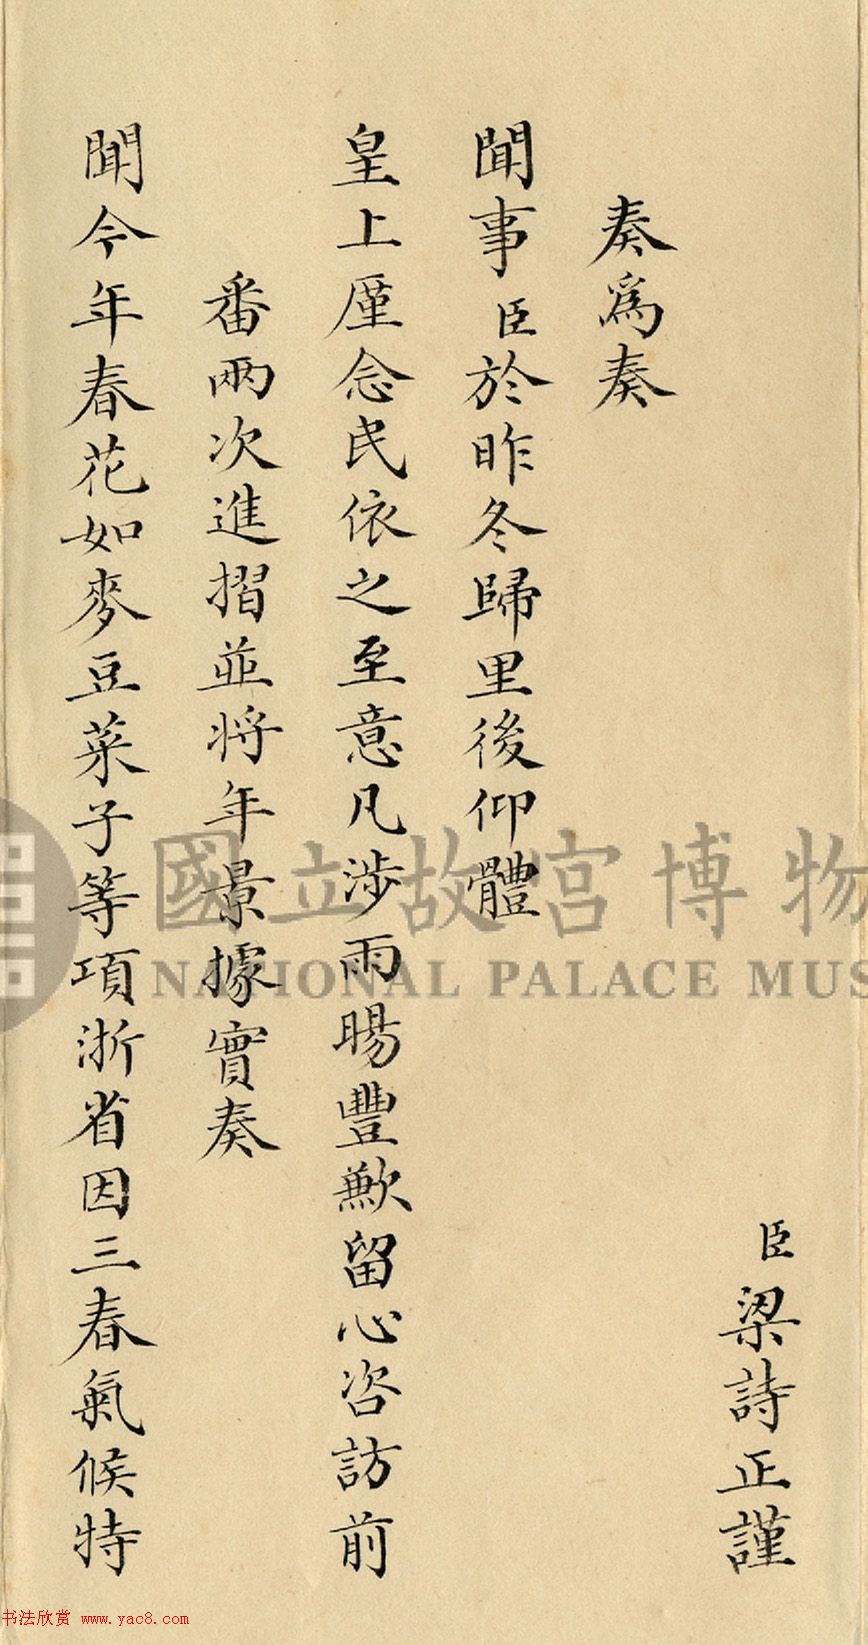 臣梁詩正謹
奏爲奏
聞事臣於昨冬歸里後仰體
皇上廑念民依之至意凡涉雨暘豐歉留心咨訪前
番兩次進摺並將年景據實奏
聞今年春花如麥豆菜子等項浙省因三春氣候特
國立故宮博物
NATIONAL PALACE MUS
书法欣赏 www.yac8.com